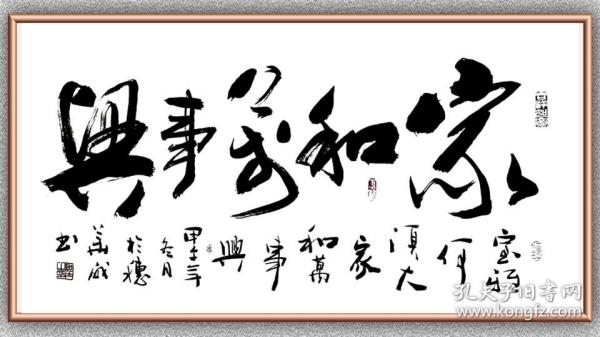 家和萬事興
室雅
何
須大
家
和萬
事
興
冬月
於穗
书
孔夫子旧书网
www.kongfz.com